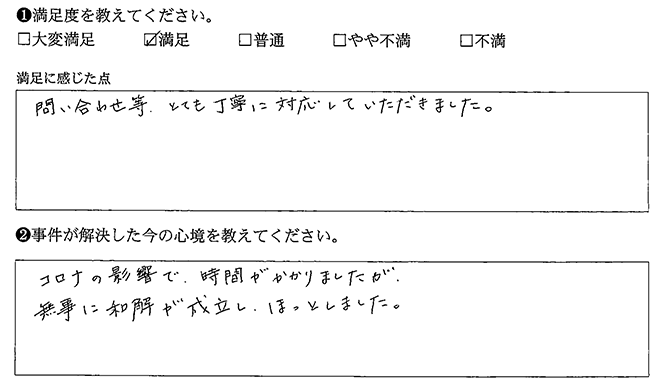 ❶満足度を教えてください。
□大変満足 ☑満足 □普通 □やや不満 □不満
満足に感じた点
問い合わせ等、とても丁寧に対応していただきました。
❷事件が解決した今の心境を教えてください。
コロナの影響で、時間がかかりましたが、
無事に和解が成立し、ほっとしました。